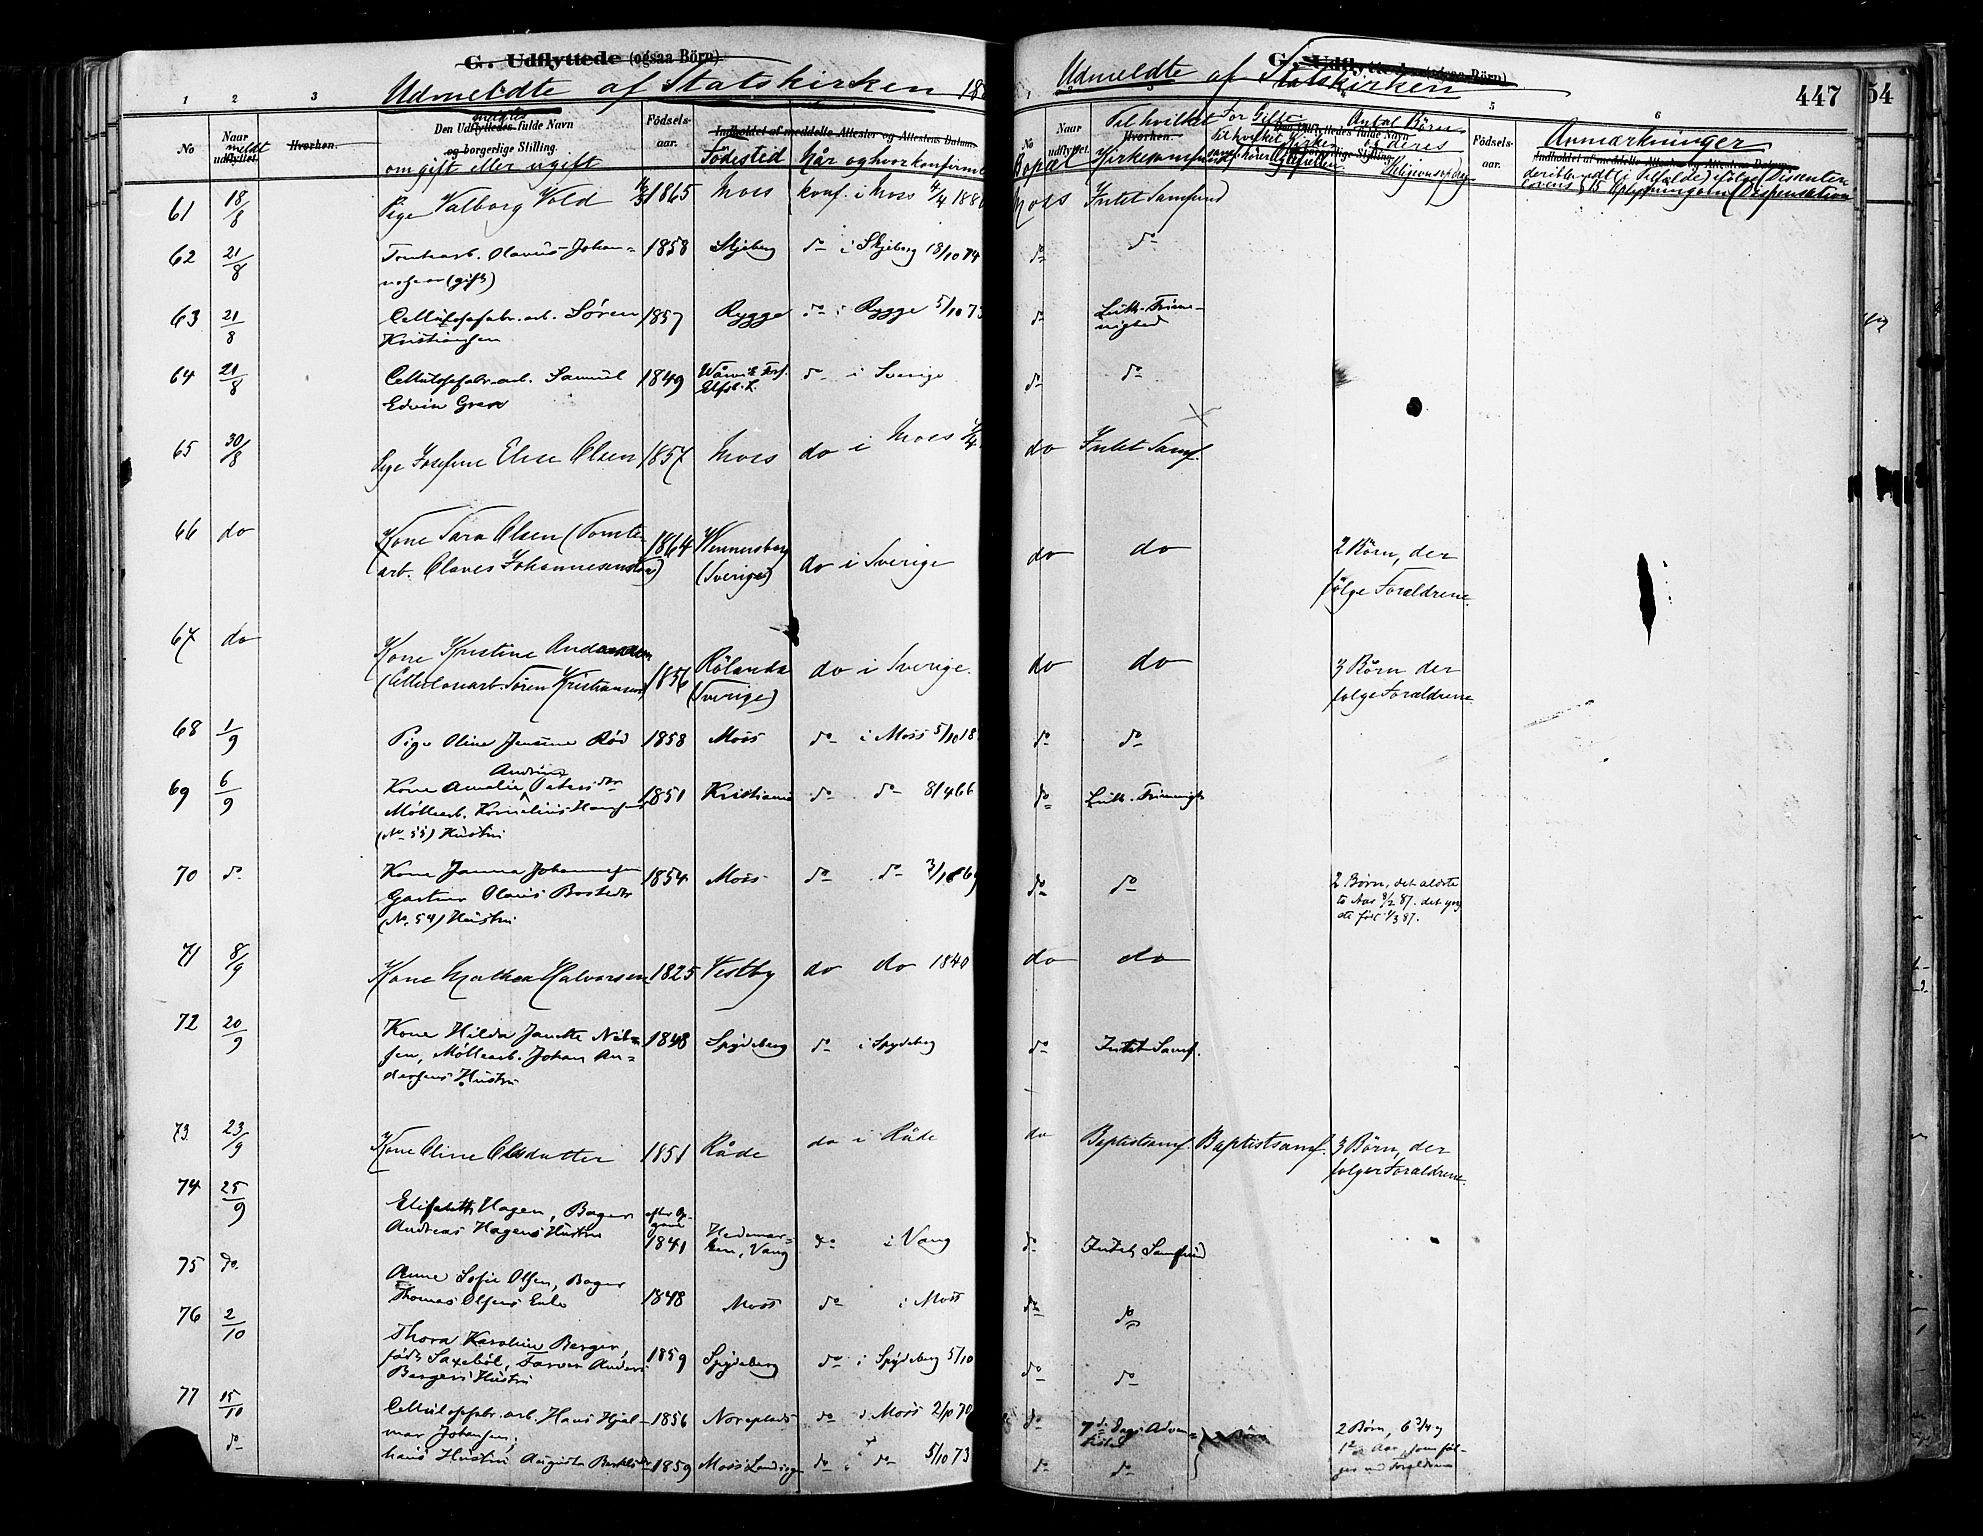 G. Udflyttede (ogsaa Börn)
Udmeldte af Statskirken 18
1 2 3
No Naar udflyttet. meldt Hvorhen. Den Udflyttedes fulde Navn og borgerlige Stilling. Födselsaar. Indholdet af meddelte Attester og Attestens Datum.
om gift eller ugift Födested Når og hvor konfirme
61 18/8 Pige Valborg Vold 1865 Moss konf. i Moss 4/4 188
62 21/8 Tomtearb. Olavus Johan= 1858 Skjeberg do i Skjeberg 18/10 74
nesen (gift)
63 21/8 Cellulosefabr. arb. Sören 1857 Rygge do i Rygge 5/10 73
Kristiansen
64 21/8 Cellulosefabr. arb. Samuel 1849 do i Sverige
Edvin Gren
65 30/8 Pige Josefine Elise Olsen 1857 Moss do i Moss
66 do Kone Sara Olsen (Tomte 1864 Wennersborg do i Sverige
arb. Olaves Johannesens (Sverige)
67 do Kone Kristine Andersen
(Cellulosearb. Sören Kristiansen) 1856 Rölanda (Sverige) do i Sverige.
68 1/9 Pige Oline Jensine Röd 1858 Moss do i Moss 5/10 18
69 6/9 Kone Amalie Andrine Petersdr 1851 Kristiania do do 8/4 66
Möllearb. Kornelius Hansens
(No 55) Hustru
70 do Kone Janna Johannesen 1854 Moss do do 3/10 69
Gartner Olavis Bastedts
(No. 54) Hustru
71 8/9 Kone Mathea Halvorsen 1825 Vestby do do 1840
72 20/9 Kone Hilda Janette Nil= 1848 Spydeberg do i Spydeberg
sen, Möllearb. Johan An=
dersens Hustru
73 23/9 Kone Oline Olsdatter 1851 Råde do i Råde
74 25/9 Elisabeth Hagen, Bager efter Op=
Andreas Hagens Hustru 1841 Hedemar=ken, Vang do i Vang
75 do Anne Sofie Olsen, Bager
Thomas Olsens Enke 1848 Moss do i Moss
76 2/10 Thora Karoline Berger,
födt Saxeböl, Farver Anders 1859 Spydeberg do i Spydeberg 5/10
Bergers Hustru
77 15/10 Cellulosefabr. arb. Hans Hjal= 1856 Noreplads do i Moss 2/10 70
mar Johansen,
do hans Hustru Augusta 1859 Moss Landsogn do i do 5/10 73
G. Udflyttede (ogsaa Börn)
Udmeldte af Statskirken
447 54
5 6
No Naar udflyttet. Hvorhen. Den Udflyttedes fulde Navn og borgerlige Stilling. Födselsaar. Indholdet af meddelte Attester og Attestens Datum.
Bopæl Til hvilket Kirkesamfund For Gifte til hvilket Kirke Antal Börn og deres Religionsopdrag Anmærkninger
Moss Intet Samfund
do do
do Luth. Frime=
nighed
do do
do Intet Samf.
do do 2 Börn, der
fölge Foræeldrene.
do do 3 Börn der
fölge Forældrene
do do
do Luth. Frimenigh
do do 2 Börn, det ældste
do do
do Intet Samf.
do Baptistsamf. Baptistsamf. 3 Börn, der
fölger Forældrene.
do Intet Samfund
do do
do do
do 7de Dags Adven=
tister 2 Börn, 6 3/4 og
do do